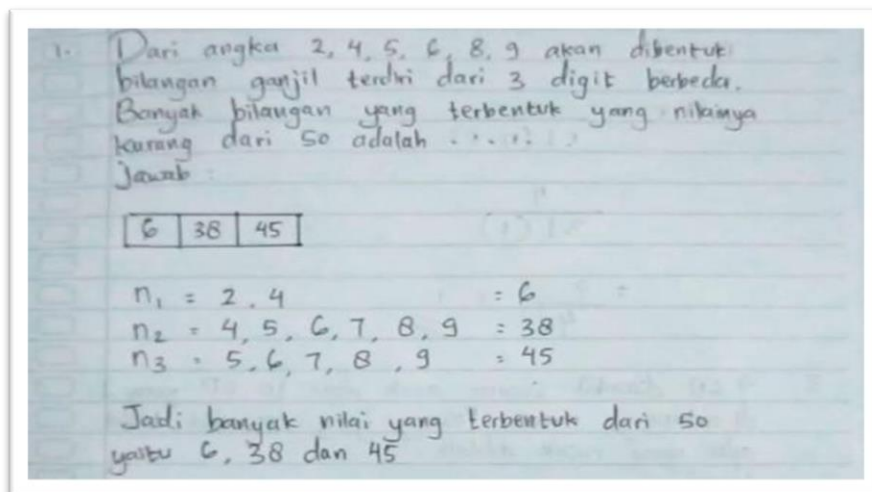 1. Dari angka 2, 4, 5, 6, 8, 9 akan dibentuk
bilangan ganjil terdiri dari 3 digit berbeda.
Banyak bilangan yang terbentuk yang nilainya
kurang dari 50 adalah ....
Jawab :
6 | 38 | 45
n1 = 2, 4 = 6
n2 = 4, 5, 6, 7, 8, 9 = 38
n3 = 5, 6, 7, 8, 9 = 45
Jadi banyak nilai yang terbentuk dari 50
yaitu 6, 38 dan 45